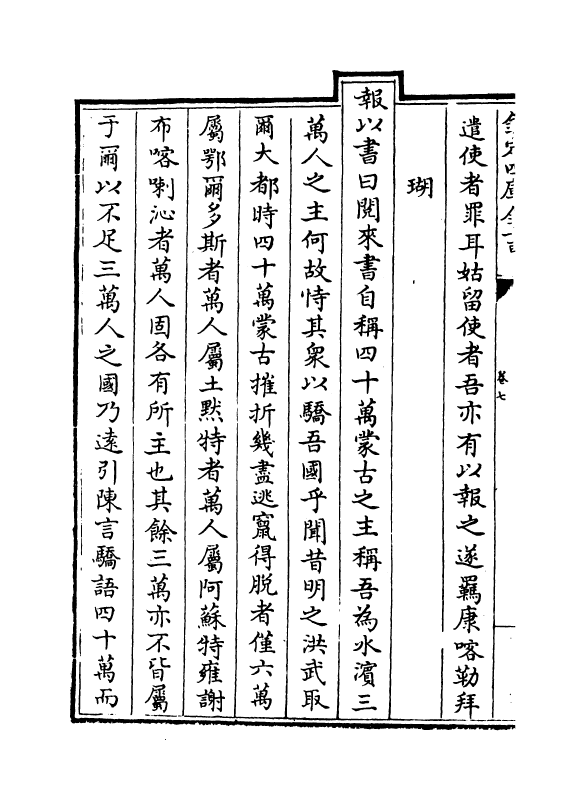 欽定四庫全書
卷七
遣使者罪耳姑留使者吾亦有以報之遂羈康喀勒拜
瑚
報以書曰閲來書自稱四十萬蒙古之主稱吾為水濱三
萬人之主何故恃其衆以驕吾國乎聞昔明之洪武取
爾大都時四十萬蒙古摧折幾盡逃竄得脱者僅六萬
屬鄂爾多斯者萬人屬土默特者萬人屬阿蘇特雍謝
布喀喇沁者萬人固各有所主也其餘三萬亦不皆屬
于爾以不足三萬人之國乃遠引陳言驕語四十萬而